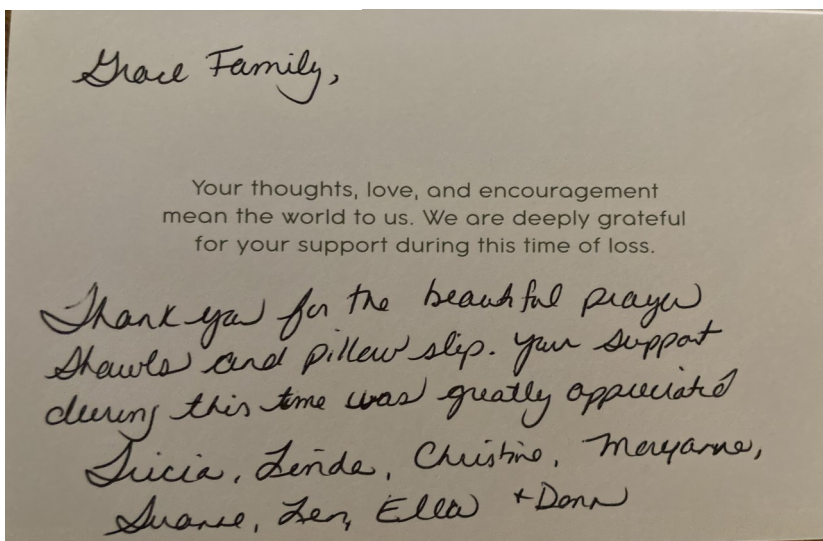 Grace Family,
Your thoughts, love, and encouragement
mean the world to us. We are deeply grateful
for your support during this time of loss.
Thank you for the beautiful prayer
shawls and pillow slip. Your support
during this time was greatly appreciated
Tricia, Linda, Christine, Maryanne,
Suanne, Len, Ella + Donn